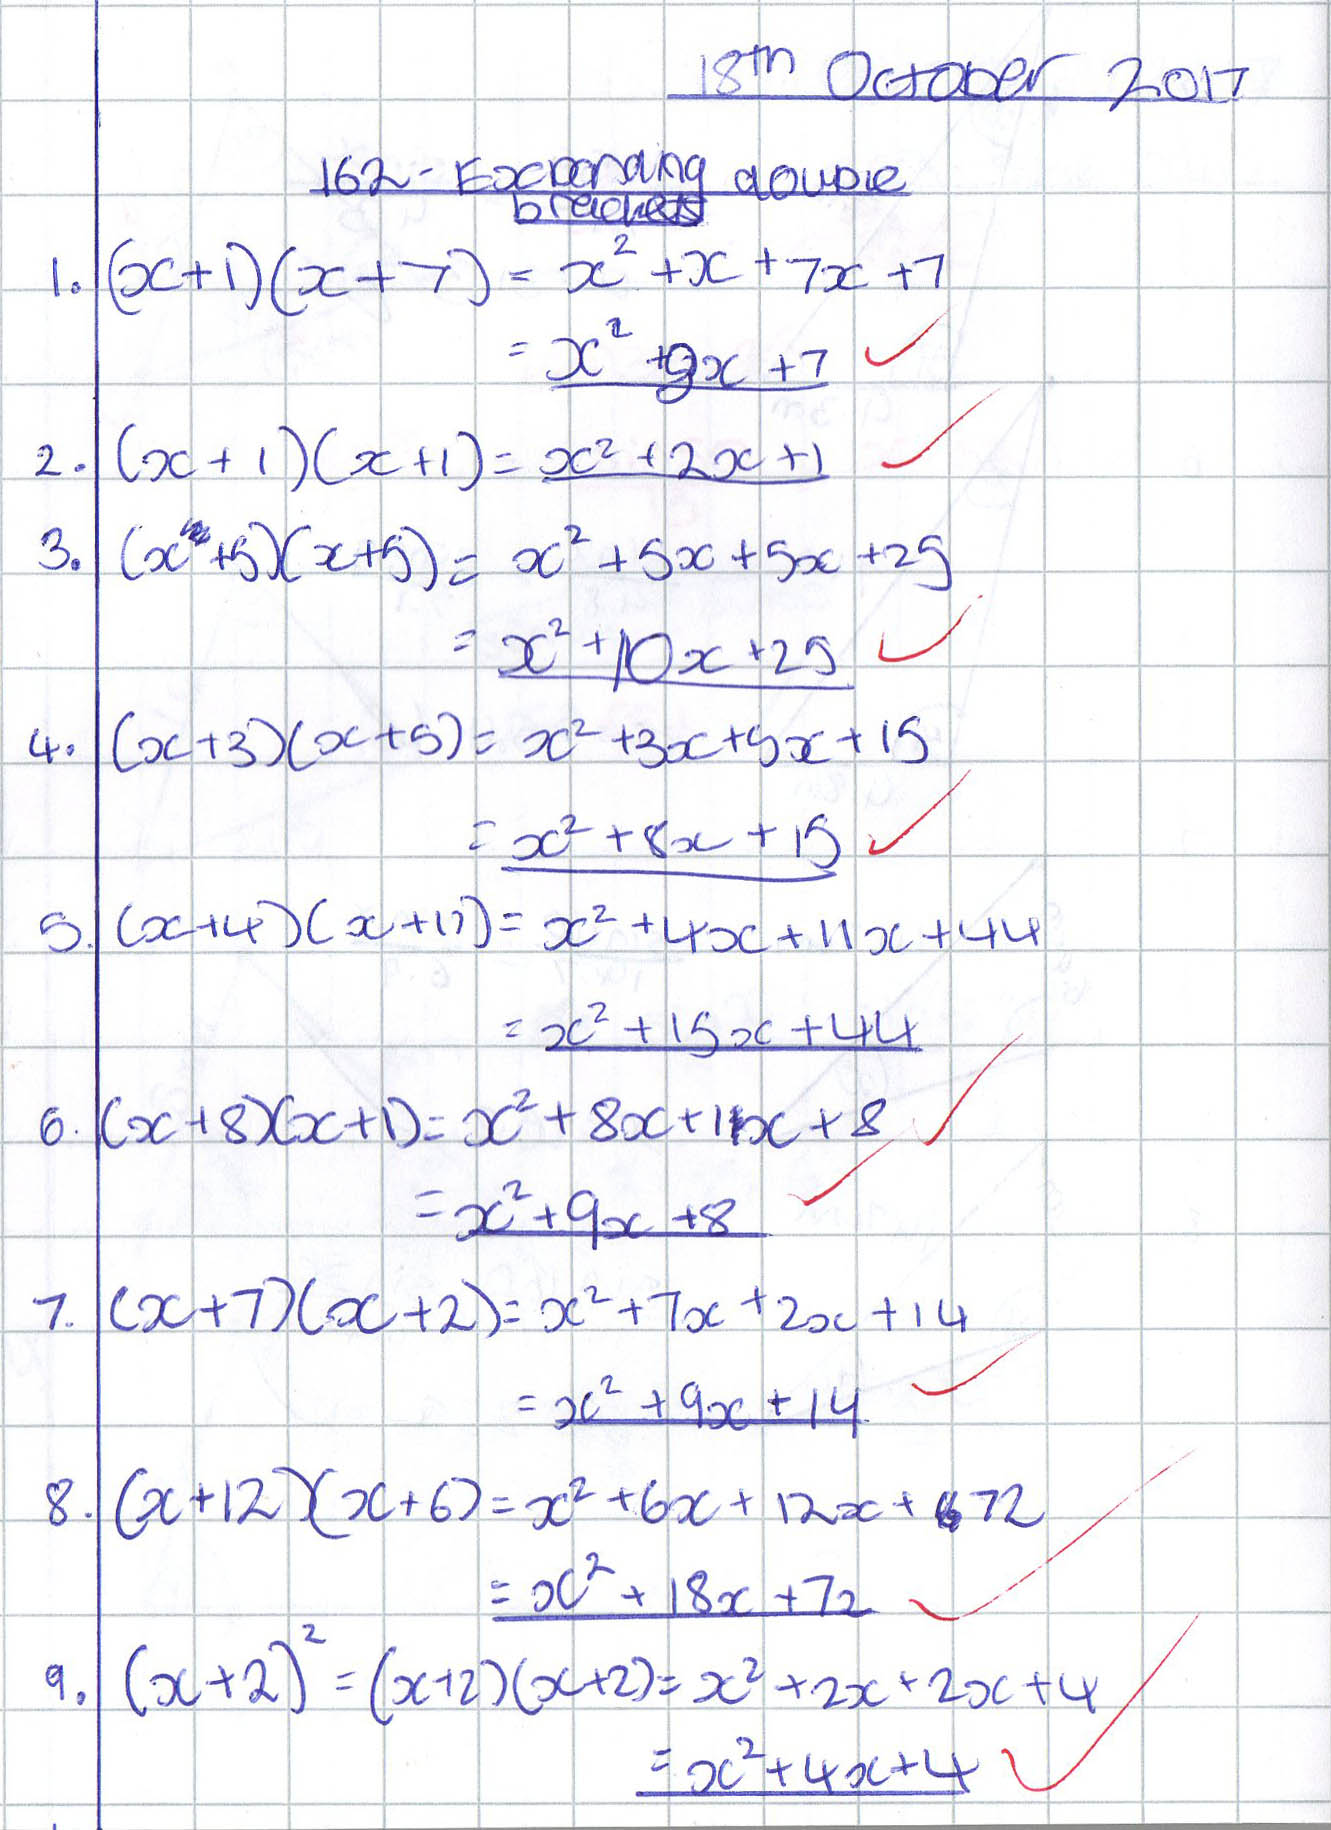 18th October 2017
162 - Expanding double
brackets
1. (x+1)(x+7) = x² + x + 7x + 7
= x² + 9x + 7
2. (x+1)(x+1) = x² + 2x + 1
3. (x+5)(x+5) = x² + 5x + 5x + 25
= x² + 10x + 25
4. (x+3)(x+5) = x² + 3x + 5x + 15
= x² + 8x + 15
5. (x+4)(x+11) = x² + 4x + 11x + 44
= x² + 15x + 44
6. (x+8)(x+1) = x² + 8x + 1x + 8
= x² + 9x + 8
7. (x+7)(x+2) = x² + 7x + 2x + 14
= x² + 9x + 14
8. (x+12)(x+6) = x² + 6x + 12x + 72
= x² + 18x + 72
9. (x+2)² = (x+2)(x+2) = x² + 2x + 2x + 4
= x² + 4x + 4